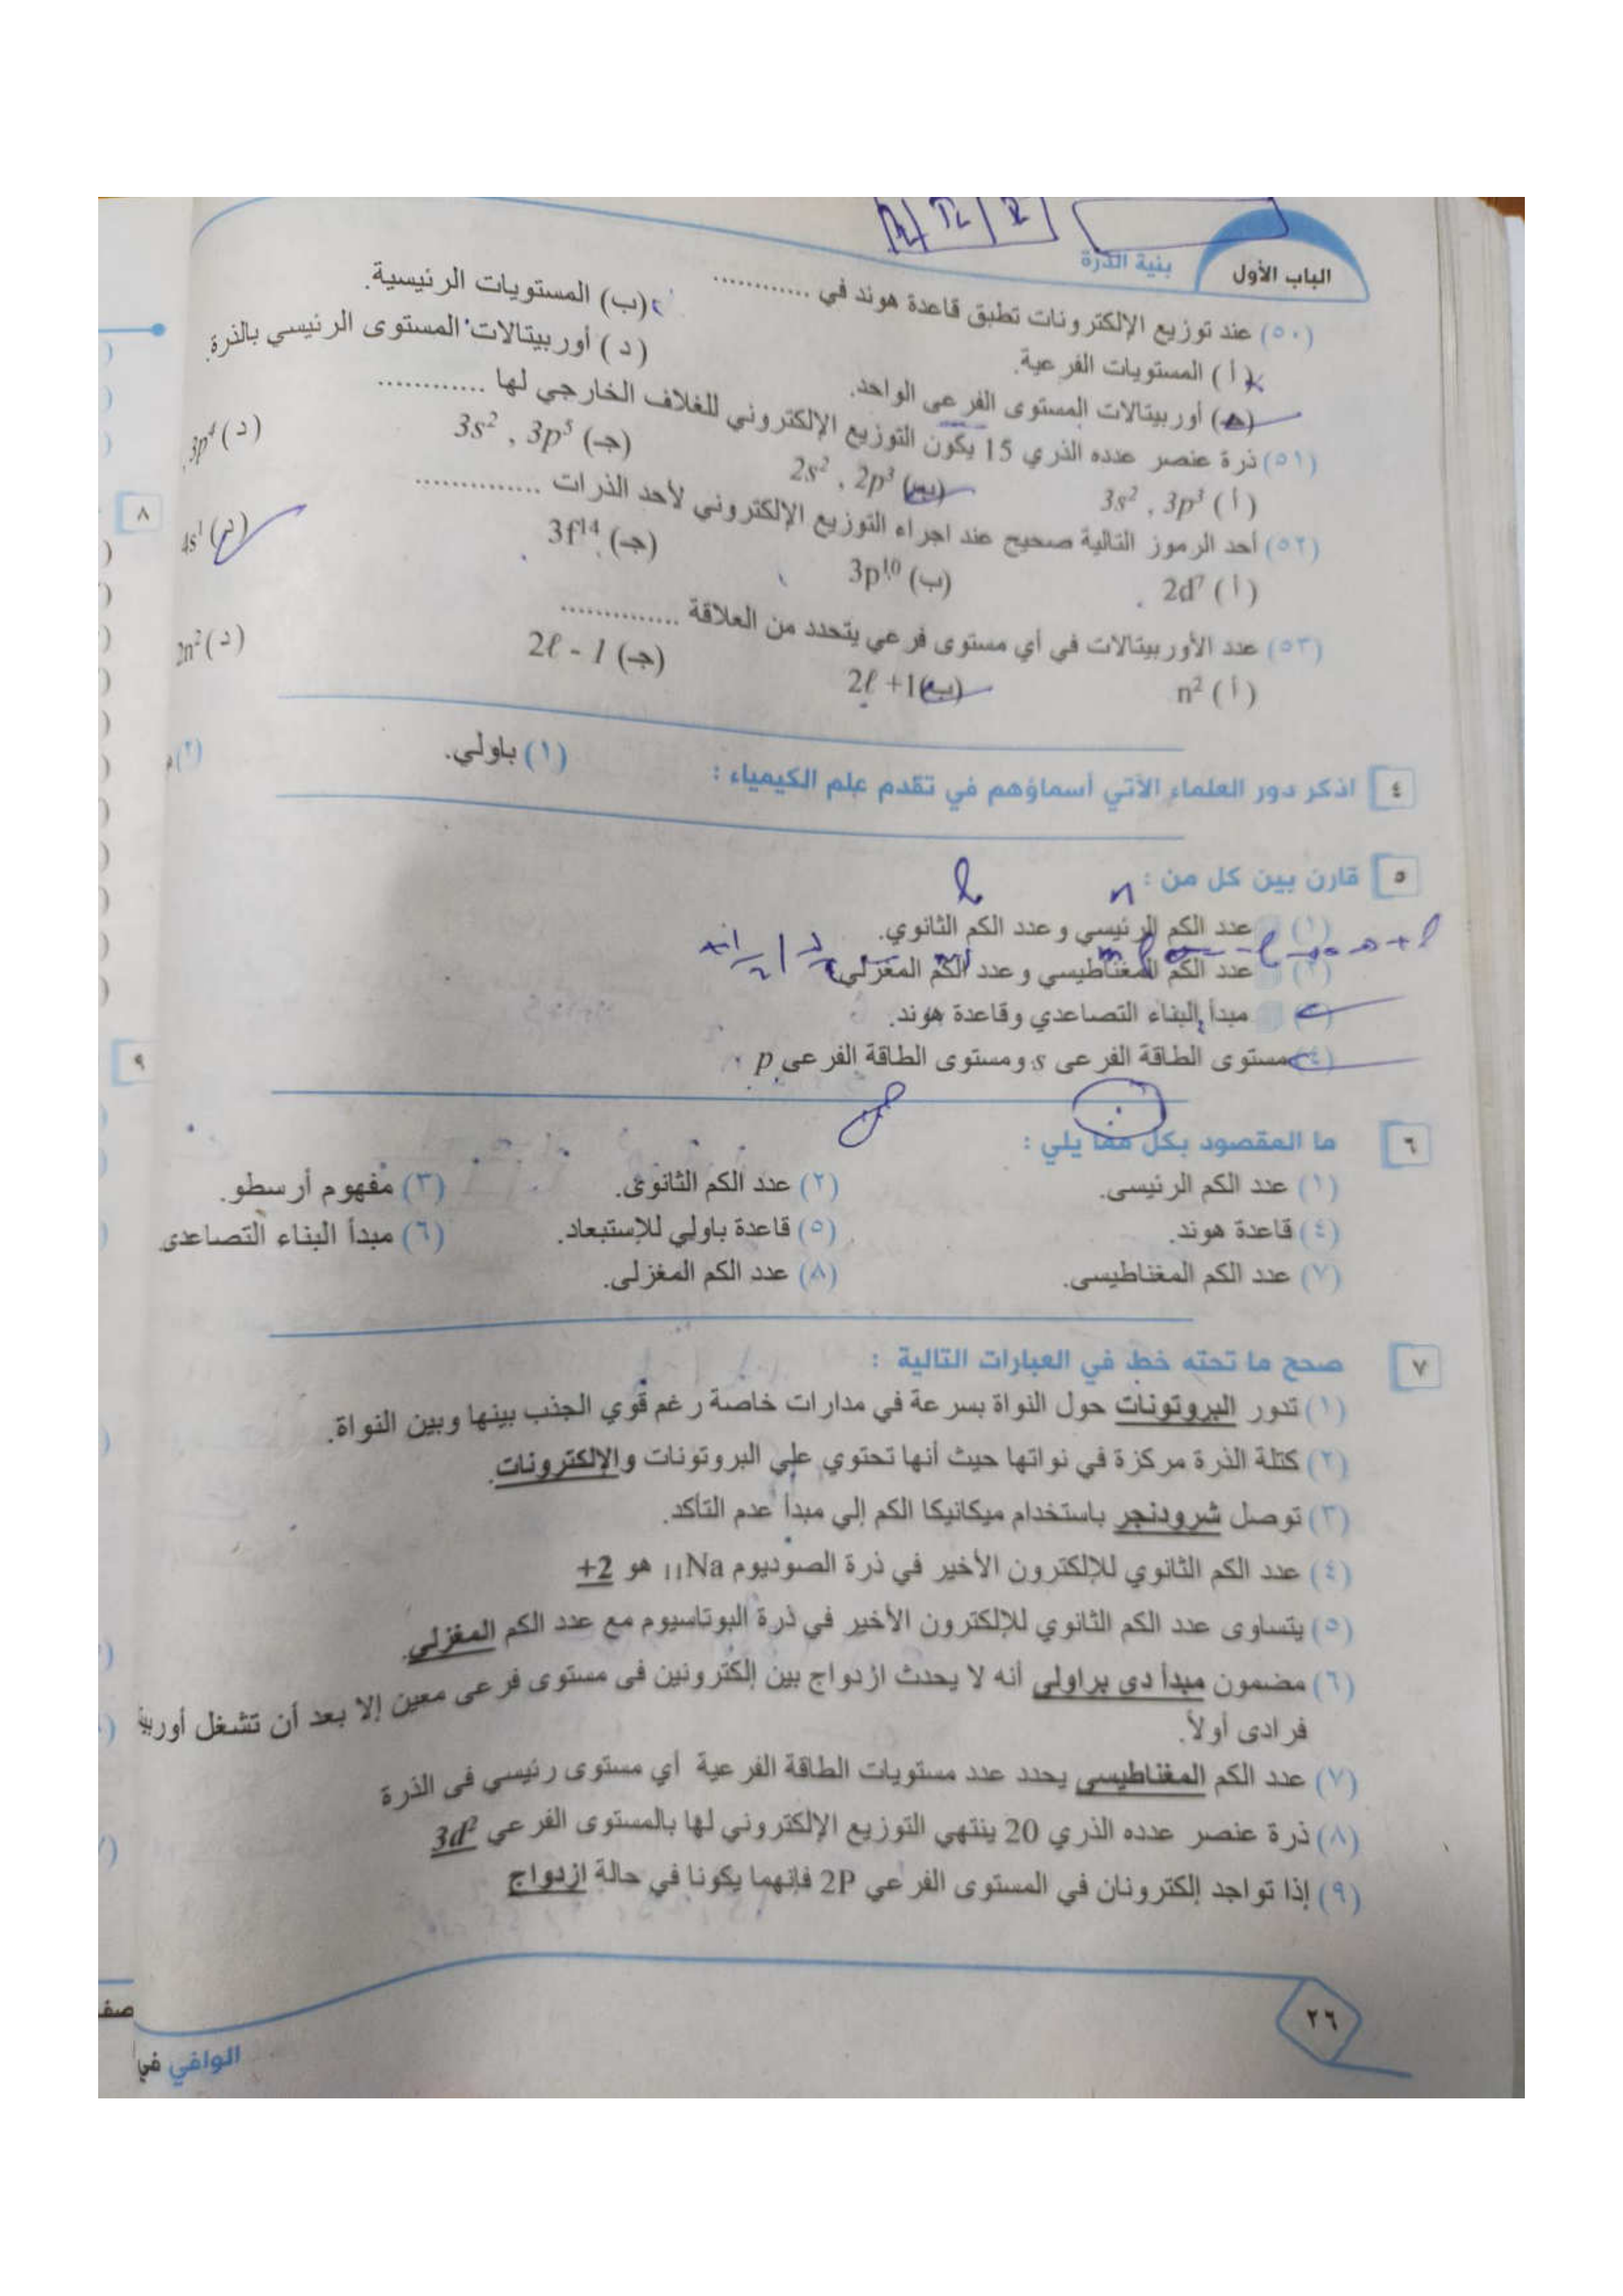 الباب الأول
بنية الذرة
(٥٠) عند توزيع الإلكترونات تطبق قاعدة هوند في ............
(أ) المستويات الفرعية.
(ب) المستويات الرئيسية.
أوربيتالات المستوى الفرعى الواحد.
(د) أوربيتالات المستوى الرئيسي بالذرة.
(٥١) ذرة عنصر عدده الذري 15 يكون التوزيع الإلكتروني للغلاف الخارجي لها ............
(أ) 3s², 3p³
(ب) 2s², 2p³
(جـ) 3s², 3p⁵
(د) 3p⁴,
(٥٢) أحد الرموز التالية صحيح عند اجراء التوزيع الإلكتروني لأحد الذرات ..............
(أ) 2d⁷
(ب) 3p¹⁰
(جـ) 3f¹⁴
(د) 4s¹
(٥٣) عدد الأوربيتالات في أي مستوى فرعي يتحدد من العلاقة .............
(أ) n²
(ب) 2ℓ +1
(جـ) 2ℓ - 1
(د) 2n²
٤ اذكر دور العلماء الآتي أسماؤهم في تقدم علم الكيمياء :
(١) باولي.
(٢)
٥ قارن بين كل من :
n
(١) عدد الكم الرئيسي وعدد الكم الثانوي.
(٢) عدد الكم المغناطيسي وعدد الكم المغزلي
مبدأ البناء التصاعدي وقاعدة هوند.
(٤) مستوى الطاقة الفرعى s ومستوى الطاقة الفرعى p
٦ ما المقصود بكل مما يلي :
(١) عدد الكم الرئيسى. (٢) عدد الكم الثانوى. (٣) مفهوم أرسطو.
(٤) قاعدة هوند. (٥) قاعدة باولي للإستبعاد. (٦) مبدأ البناء التصاعدى
(٧) عدد الكم المغناطيسى. (٨) عدد الكم المغزلى.
٧ صحح ما تحته خط في العبارات التالية :
(١) تدور البروتونات حول النواة بسرعة في مدارات خاصة رغم قوي الجذب بينها وبين النواة.
(٢) كتلة الذرة مركزة في نواتها حيث أنها تحتوي علي البروتونات والإلكترونات.
(٣) توصل شرودنجر باستخدام ميكانيكا الكم إلي مبدأ عدم التأكد.
(٤) عدد الكم الثانوي للإلكترون الأخير في ذرة الصوديوم ₁₁Na هو +2
(٥) يتساوى عدد الكم الثانوي للإلكترون الأخير في ذرة البوتاسيوم مع عدد الكم المغزلي.
(٦) مضمون مبدأ دى براولى أنه لا يحدث ازدواج بين إلكترونين فى مستوى فرعى معين إلا بعد أن تشغل أوربي
فرادى أولاً.
(٧) عدد الكم المغناطيسى يحدد عدد مستويات الطاقة الفرعية أي مستوى رئيسي فى الذرة
(٨) ذرة عنصر عدده الذري 20 ينتهي التوزيع الإلكتروني لها بالمستوى الفرعي 3d²
(٩) إذا تواجد إلكترونان في المستوى الفرعي 2P فإنهما يكونا في حالة ازدواج
٢٦
الوافي في
٨
٩
صف